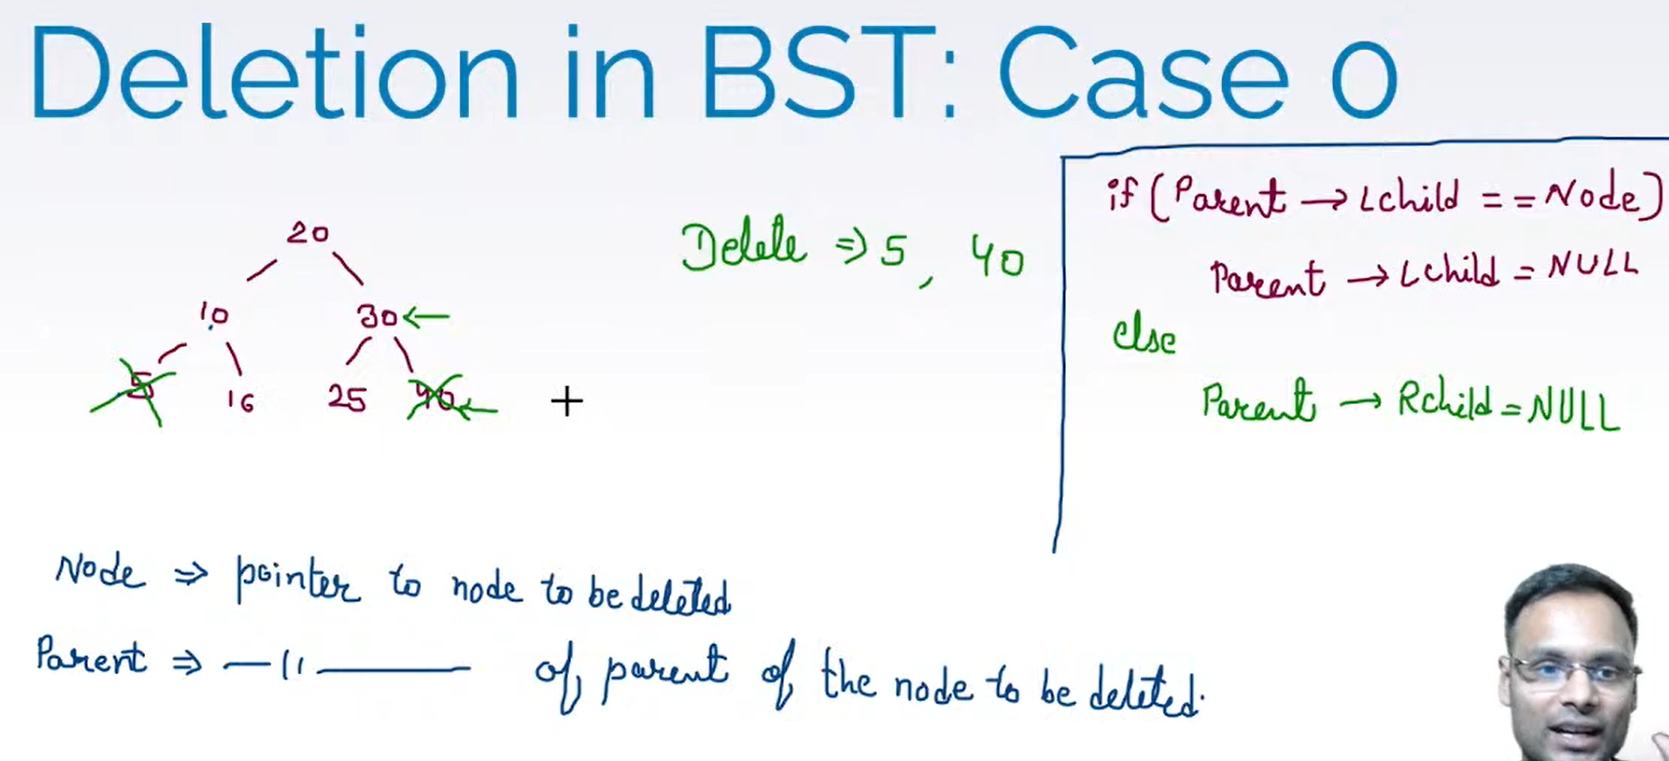 Deletion in BST: Case 0
20
10 30
5 16 25 40
Delete ⇒ 5, 40
if (Parent → Lchild == Node)
Parent → Lchild = NULL
else
Parent → Rchild = NULL
Node ⇒ pointer to node to be deleted
Parent ⇒ —〃— of parent of the node to be deleted.